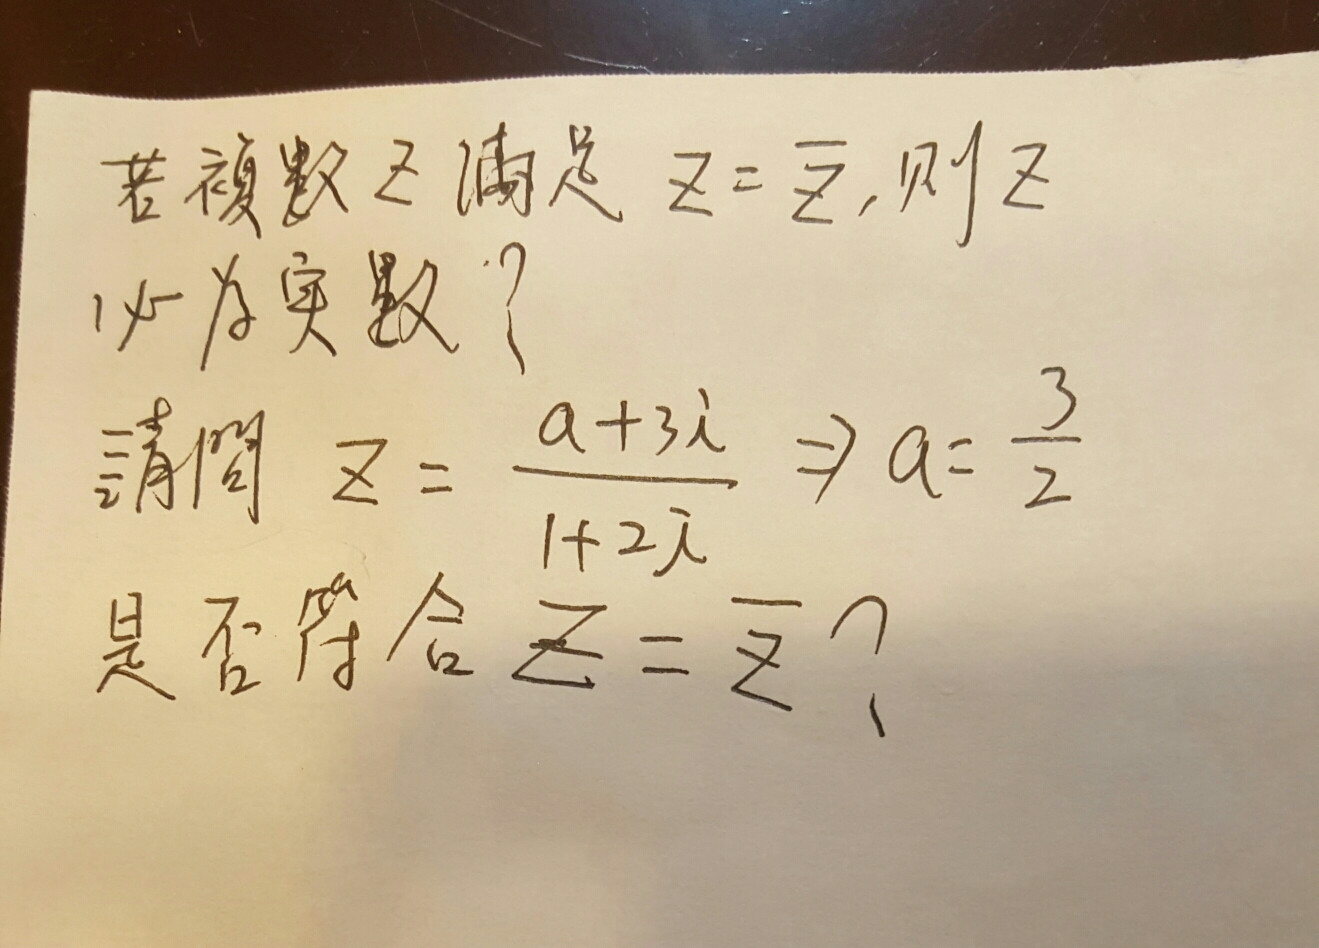 若複數 z 滿足 z = z̅, 則 z
必為实數?
請問 z = (a+3i)/(1+2i) ⇒ a = 3/2
是否符合 z = z̅ ?